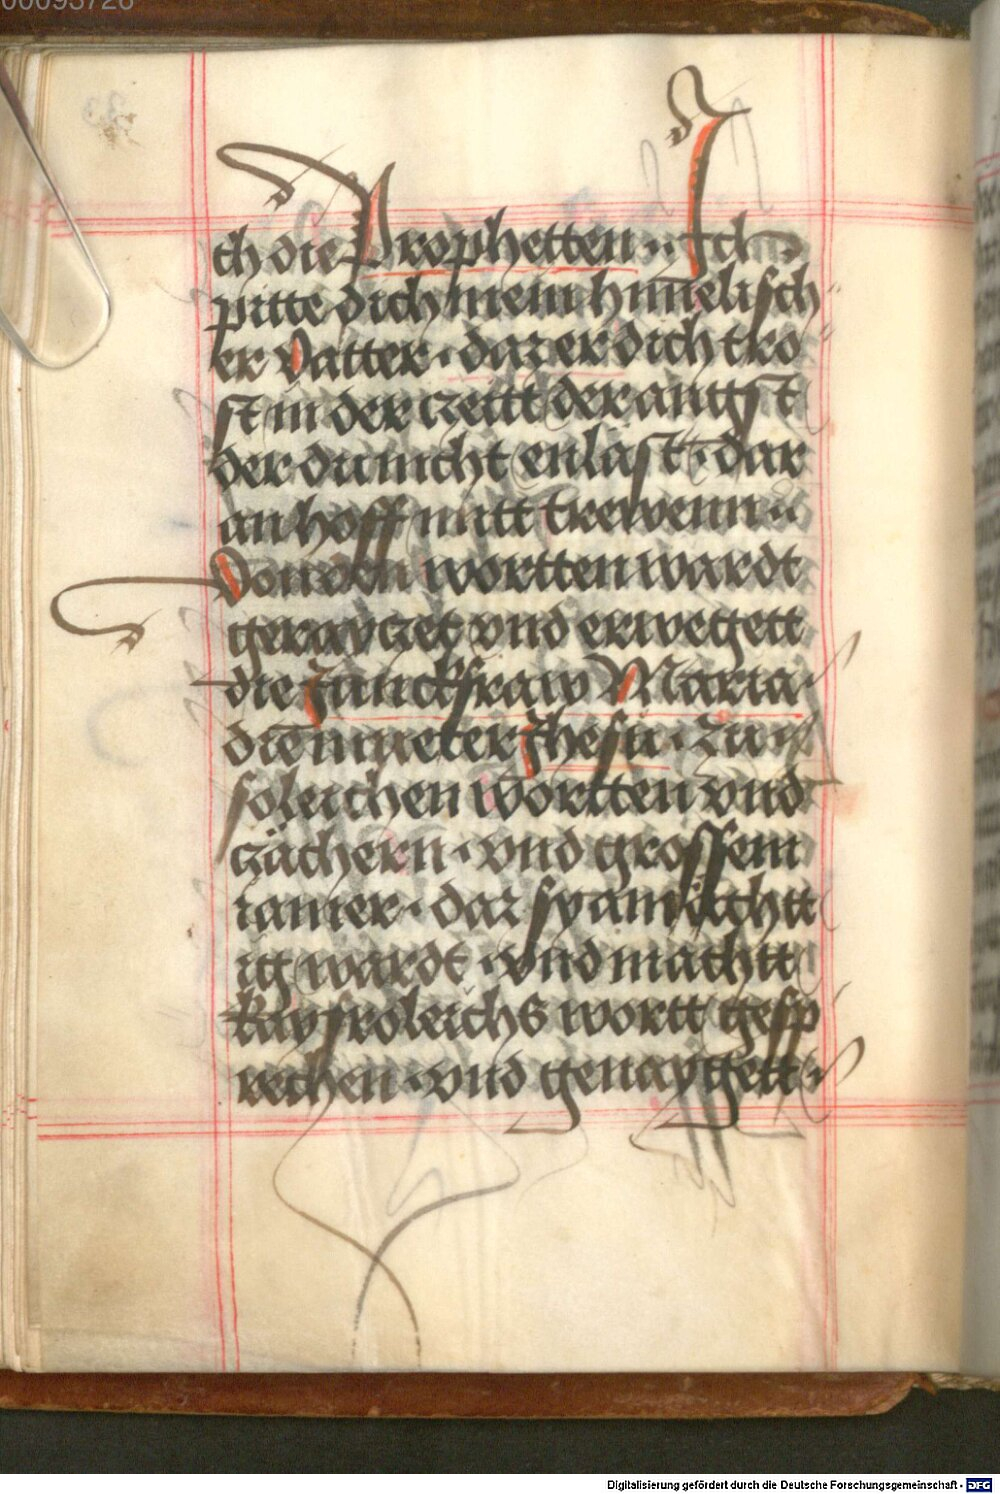 00095728
ch die Prophetten ·:· Ich
pitte dich mein himelisch
er Vatter · daz er dich tro
st in der czeitt der angst
der du nicht enlast · dar
an hoff mitt trewenn ·:·
Von den wortten wardt
gerayczet vnd erwegett
die Junckfraw Maria ·
die mueter Jhesu · Zu
soleichen wortten vnd
czächern · vnd grossem
iamer · daz sy amächtt
ig wardt · vnd machtt
kay froleichs wortt gesp
rechen · vnd genaygett ·
Digitalisierung gefördert durch die Deutsche Forschungsgemeinschaft - DFG